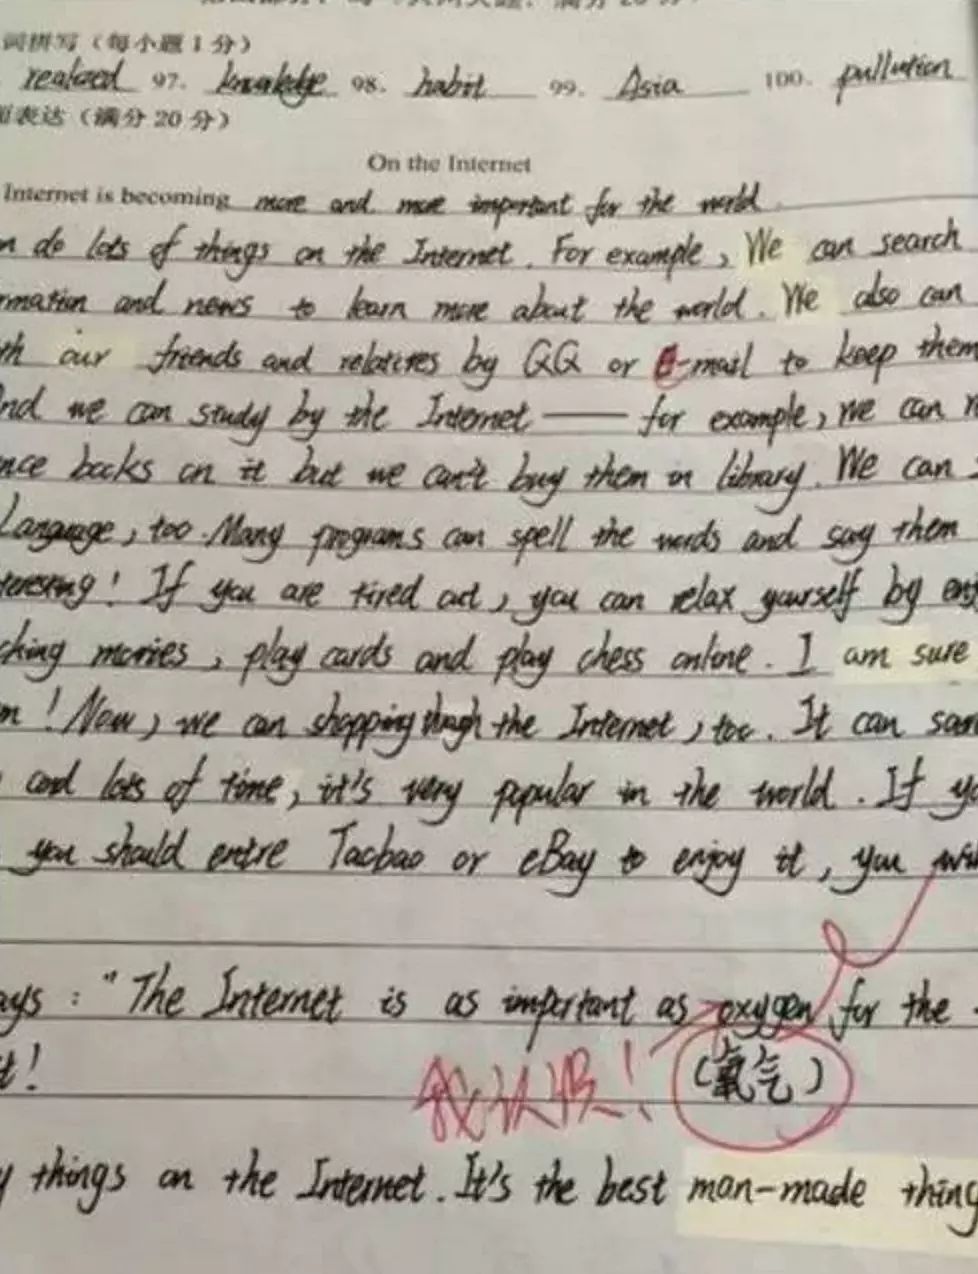 词拼写（每小题1分）
realized 97. knowledge 98. habit 99. Asia 100. pullution
面表达（满分20分）
On the Internet
Internet is becoming more and more important for the world
n do lots of things on the Internet. For example, We can search
rmation and news to learn more about the world. We also can
th our friends and relatires by QQ or e-mail to keep them
nd we can study by the Internet —— for example, we can r
nce books on it but we can't buy them in library. We can
Language, too. Many programs can spell the words and say them
teresting! If you are tired out, you can relax yourself by enj
ching movies, play cards and play chess online. I am sure
m! Now, we can shopping though the Internet, too. It can sav
and lots of time, it's very popular in the world. If yo
you should entre Taobao or eBay to enjoy it, you wil
ays: "The Internet is as important as oxygen for the
t!
我认识！ (氧气)
y things on the Internet. It's the best man-made thing